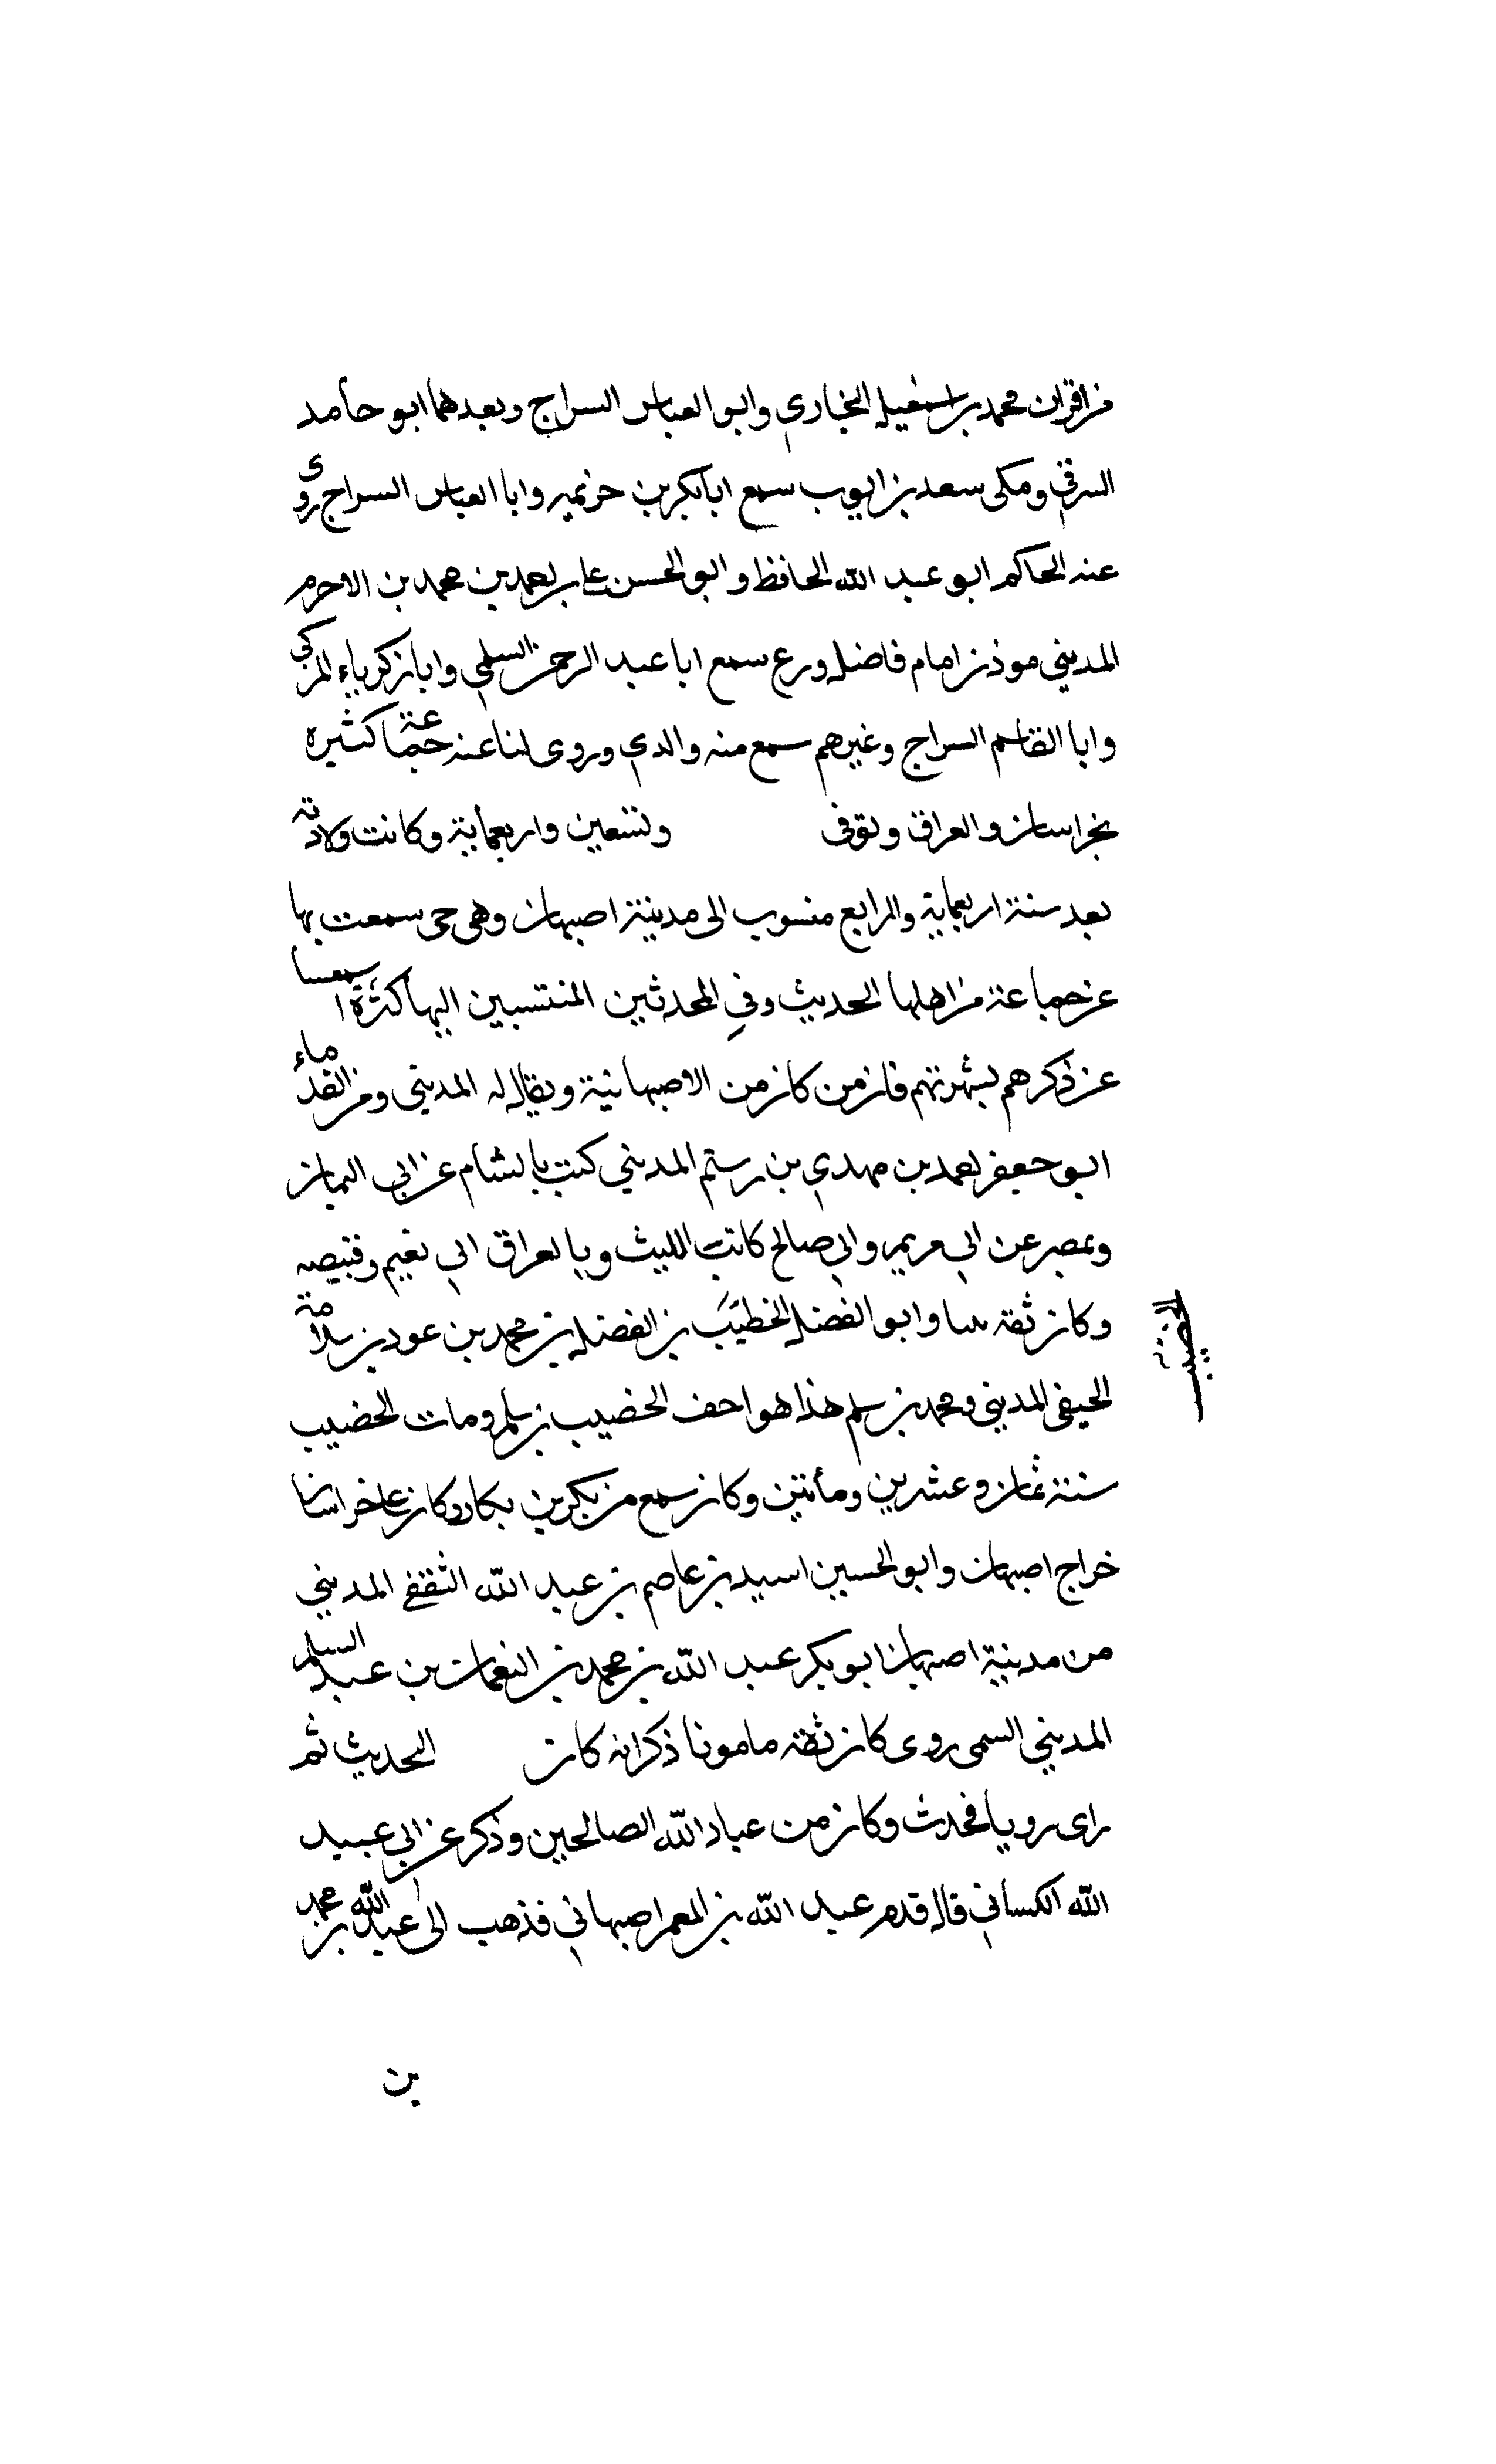 من اقران محمد بن اسمعيل البخاري وابو العباس السراج وبعدهما ابو حامد
السرقي ومكى سعد بن ايوب سمع ابا بكر بن خزيمه وابا العباس السراج روى
عنه الحاكم ابو عبد الله الحافظ وابو الحسن على بن احمد بن محمد بن الاخرم
المديني موذن امام فاضل ورع سمع ابا عبد الرحمن السلمي وابا زكرياء المزكي
وابا القاسم السراج وغيرهم سمع منه والدي وروى لنا عنه جماعة كثيره
بخراسان والعراق وتوفى وتسعين واربعماية وكانت ولادته
بعد سنة اربعماية والرابع منسوب الى مدينة اصبهان وهى حى سمعت بها
عن جماعة من اهلها الحديث وفي المحدثين المنتسبين اليها كثرة
عن ذكرهم لشهرتهم فان من كان من الاصبهانية ويقال له المديني ومن القدماء
ابو جعفر احمد بن مهدي بن رستم المديني كتب بالشام عن ابى اليمان
وبمصر عن ابي مريم وابي صالح كاتب الليث وبالعراق ابي نعيم وقبيصه
وكان ثقه وابو الفضل الخطيب بن الفضل بن محمد بن عود بن سلامة
الخصيب
الحيفى المديني ومحمد بن سلم هذا هو احف الخصيب بن سلم ومات الخضيب
سنة ثمان وعشرين ومأتين وكان سمع من بكر بن بكار وكان على خراسان
خراج اصبهان وابو الحسين اسيد بن عاصم بن عبد الله الثقفي المديني
من مدينة اصبهان ابو بكر عبد الله بن محمد بن النعمان بن عبد السلم
المديني السمى روى كان ثقة مامونا ذكر انه كان الحديث ثم
راى رويا فحدث وكان من عباد الله الصالحين وذكر عن ابي عبيد
الله الكسأني قال قدم عبد الله بن المعمر اصبهاني فذهب الى عبد الله بن محمد
بن